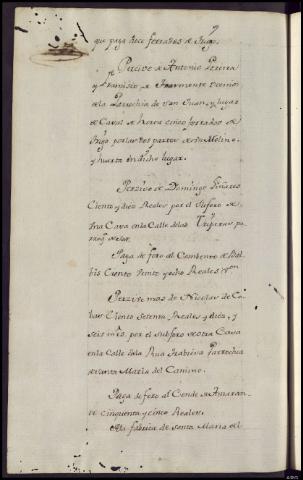 que paga doce ferrados de trigo.
Percivo de Antonio Pereira
y Francisco de Framonte vecinos
de la Parrochia de San Juan, y lugar
de Caval de Norea cinco ferrados de
trigo por las dos partes de un Molino
y huerta en dicho lugar.
Percivo de Domingo Piñares
Ciento y diez Reales por el subforo de
una Cassa en la Calle de las Triperas
Paga de foro al Combento de Bel
bis Ciento Veinte y ocho Reales von
Percivi mas de Nicolas de Co
bas Ciento setenta Reales y diez, y
seis mrs. por el subforo de otra Cassa
en la Calle de la Rua trabiesa Parrochia
de santa Maria del Camino.
Paga de foro al Conde de Amaran
te cinquenta y cinco Reales.
A la fabrica de Santa Maria del